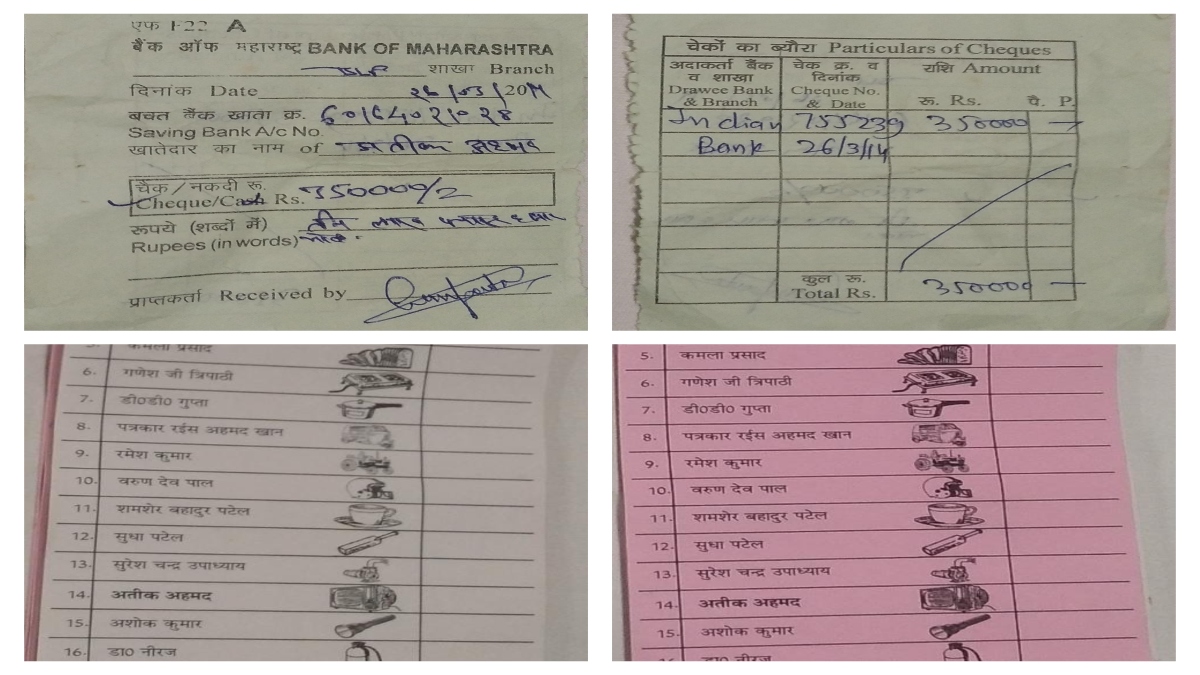 एफ 1-22 A
बैंक ऑफ महाराष्ट्र BANK OF MAHARASHTRA
शाखा Branch
दिनांक Date 26/03/2014
बचत बैंक खाता क्र.
Saving Bank A/c No.
खातेदार का नाम of अतीक अहमद
चैक/नकदी रू.
Cheque/Cash Rs. 350000/2
रूपये (शब्दों में) तीन लाख
Rupees (in words)
प्राप्तकर्ता Received by
चेकों का ब्यौरा Particulars of Cheques
अदाकर्ता बैंक चेक क्र. व राशि Amount
व शाखा दिनांक
Drawee Bank Cheque No.
& Branch & Date रू. Rs. पै. P.
Indian 755239 350000
Bank 26/3/14
कुल रू.
Total Rs. 350000
5. कमला प्रसाद
6. गणेश जी त्रिपाठी
7. डी0डी0 गुप्ता
8. पत्रकार रईस अहमद खान
9. रमेश कुमार
10. वरुण देव पाल
11. शमशेर बहादुर पटेल
12. सुधा पटेल
13. सुरेश चन्द्र उपाध्याय
14. अतीक अहमद
15. अशोक कुमार
16. डा0 नीरज
5. कमला प्रसाद
6. गणेश जी त्रिपाठी
7. डी0डी0 गुप्ता
8. पत्रकार रईस अहमद खान
9. रमेश कुमार
10. वरुण देव पाल
11. शमशेर बहादुर पटेल
12. सुधा पटेल
13. सुरेश चन्द्र उपाध्याय
14. अतीक अहमद
15. अशोक कुमार
16. डा0 नीरज